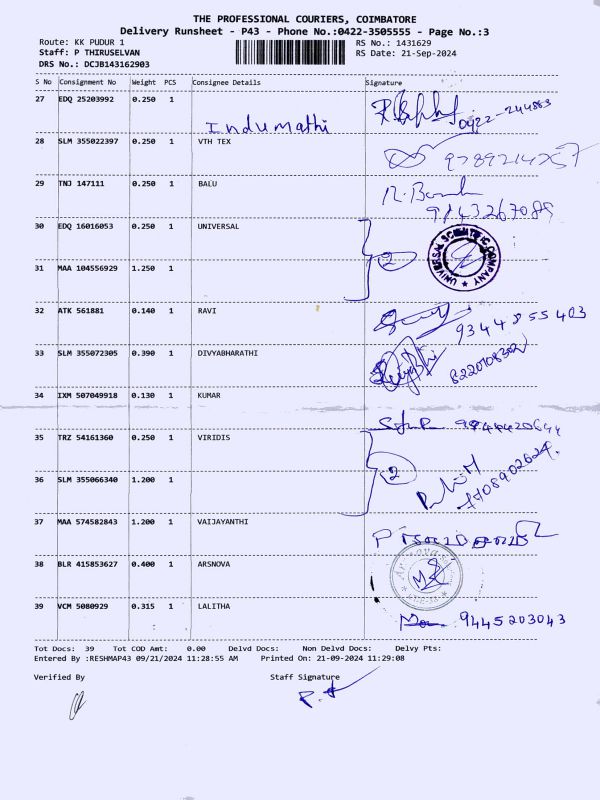 THE PROFESSIONAL COURIERS, COIMBATORE
Delivery Runsheet - P43 - Phone No.:0422-3505555 - Page No.:3
Route: KK PUDUR 1
RS No.: 1431629
Staff: P THIRUSELVAN
RS Date: 21-Sep-2024
DRS No.: DCJB143162903
S No Consignment No Weight PCS Consignee Details Signature
27 EDQ 25203992 0.250 1
Indumathi
0422-244883
28 SLM 355022397 0.250 1 VTH TEX
9789214757
29 TNJ 147111 0.250 1 BALU
9143267089
30 EDQ 16016053 0.250 1 UNIVERSAL
2
UNIVERSAL SCIENTIFIC COMPANY
31 MAA 104556929 1.250 1
32 ATK 561881 0.140 1 RAVI
9344855403
33 SLM 355072305 0.390 1 DIVYABHARATHI
34 IXM 507049918 0.130 1 KUMAR
35 TRZ 54161360 0.250 1 VIRIDIS
2
36 SLM 355066340 1.200 1
37 MAA 574582843 1.200 1 VAIJAYANTHI
38 BLR 415853627 0.400 1 ARSNOVA
39 VCM 5080929 0.315 1 LALITHA
9445203043
Tot Docs: 39 Tot COD Amt: 0.00 Delvd Docs: Non Delvd Docs: Delvy Pts:
Entered By :RESHMAP43 09/21/2024 11:28:55 AM Printed On: 21-09-2024 11:29:08
Verified By Staff Signature